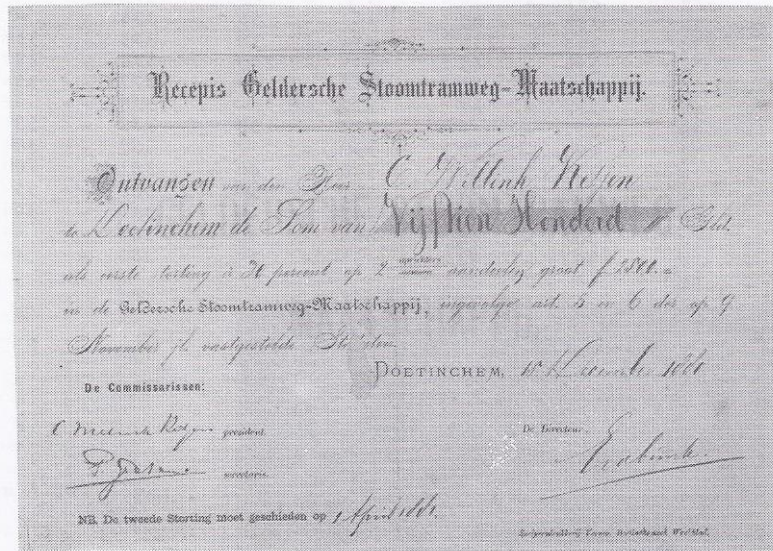 Recepis Geldersche Stoomtramweg-Maatschappij.
Ontvangen van den Heer C. Willink Ketjen
te Doetinchem de Som van Vijftien Honderd Gld.
als eerste storting à percent op 2 aandeelen groot f
in de Geldersche Stoomtramweg-Maatschappij, ingevolge art. 5 en 6 der op 9
November jl. vastgestelde Statuten
DOETINCHEM, 15 December
De Commissarissen:
president.
De Directeur.
secretaris.
NB. De tweede Storting moet geschieden op 1 April 1881.